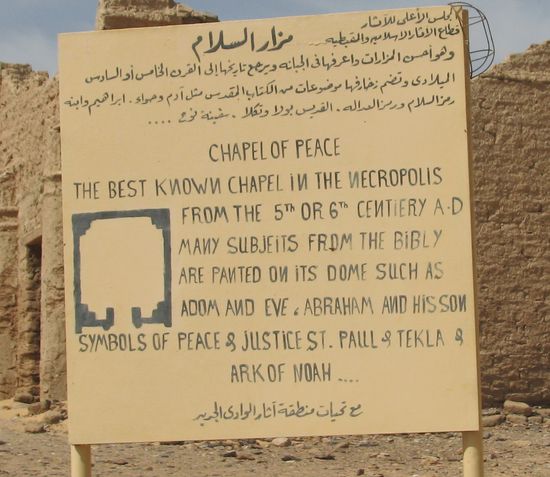 المجلس الأعلى للآثار
قطاع الآثار الإسلامية والقبطية
مزار السلام
وهو أحسن المزارات وأعرفها فى الجبانه ويرجع تاريخها إلى القرن الخامس أو السادس
الميلادى وتضم زخارفها موضوعات من الكتاب المقدس مثل آدم وحواء . ابراهيم وابنه
رمز السلام ورمز العداله . القديس بولا وتكلا . سفينة نوح ....
CHAPEL OF PEACE
THE BEST KNOWN CHAPEL IN THE NECROPOLIS
FROM THE 5TH OR 6TH CENTIERY A.D
MANY SUBJEITS FROM THE BIBLY
ARE PANTED ON ITS DOME SUCH AS
ADOM AND EVE & ABRAHAM AND HIS SON
SYMBOLS OF PEACE & JUSTICE ST. PAUL & TEKLA &
ARK OF NOAH ....
مع تحيات منطقة آثار الوادى الجديد